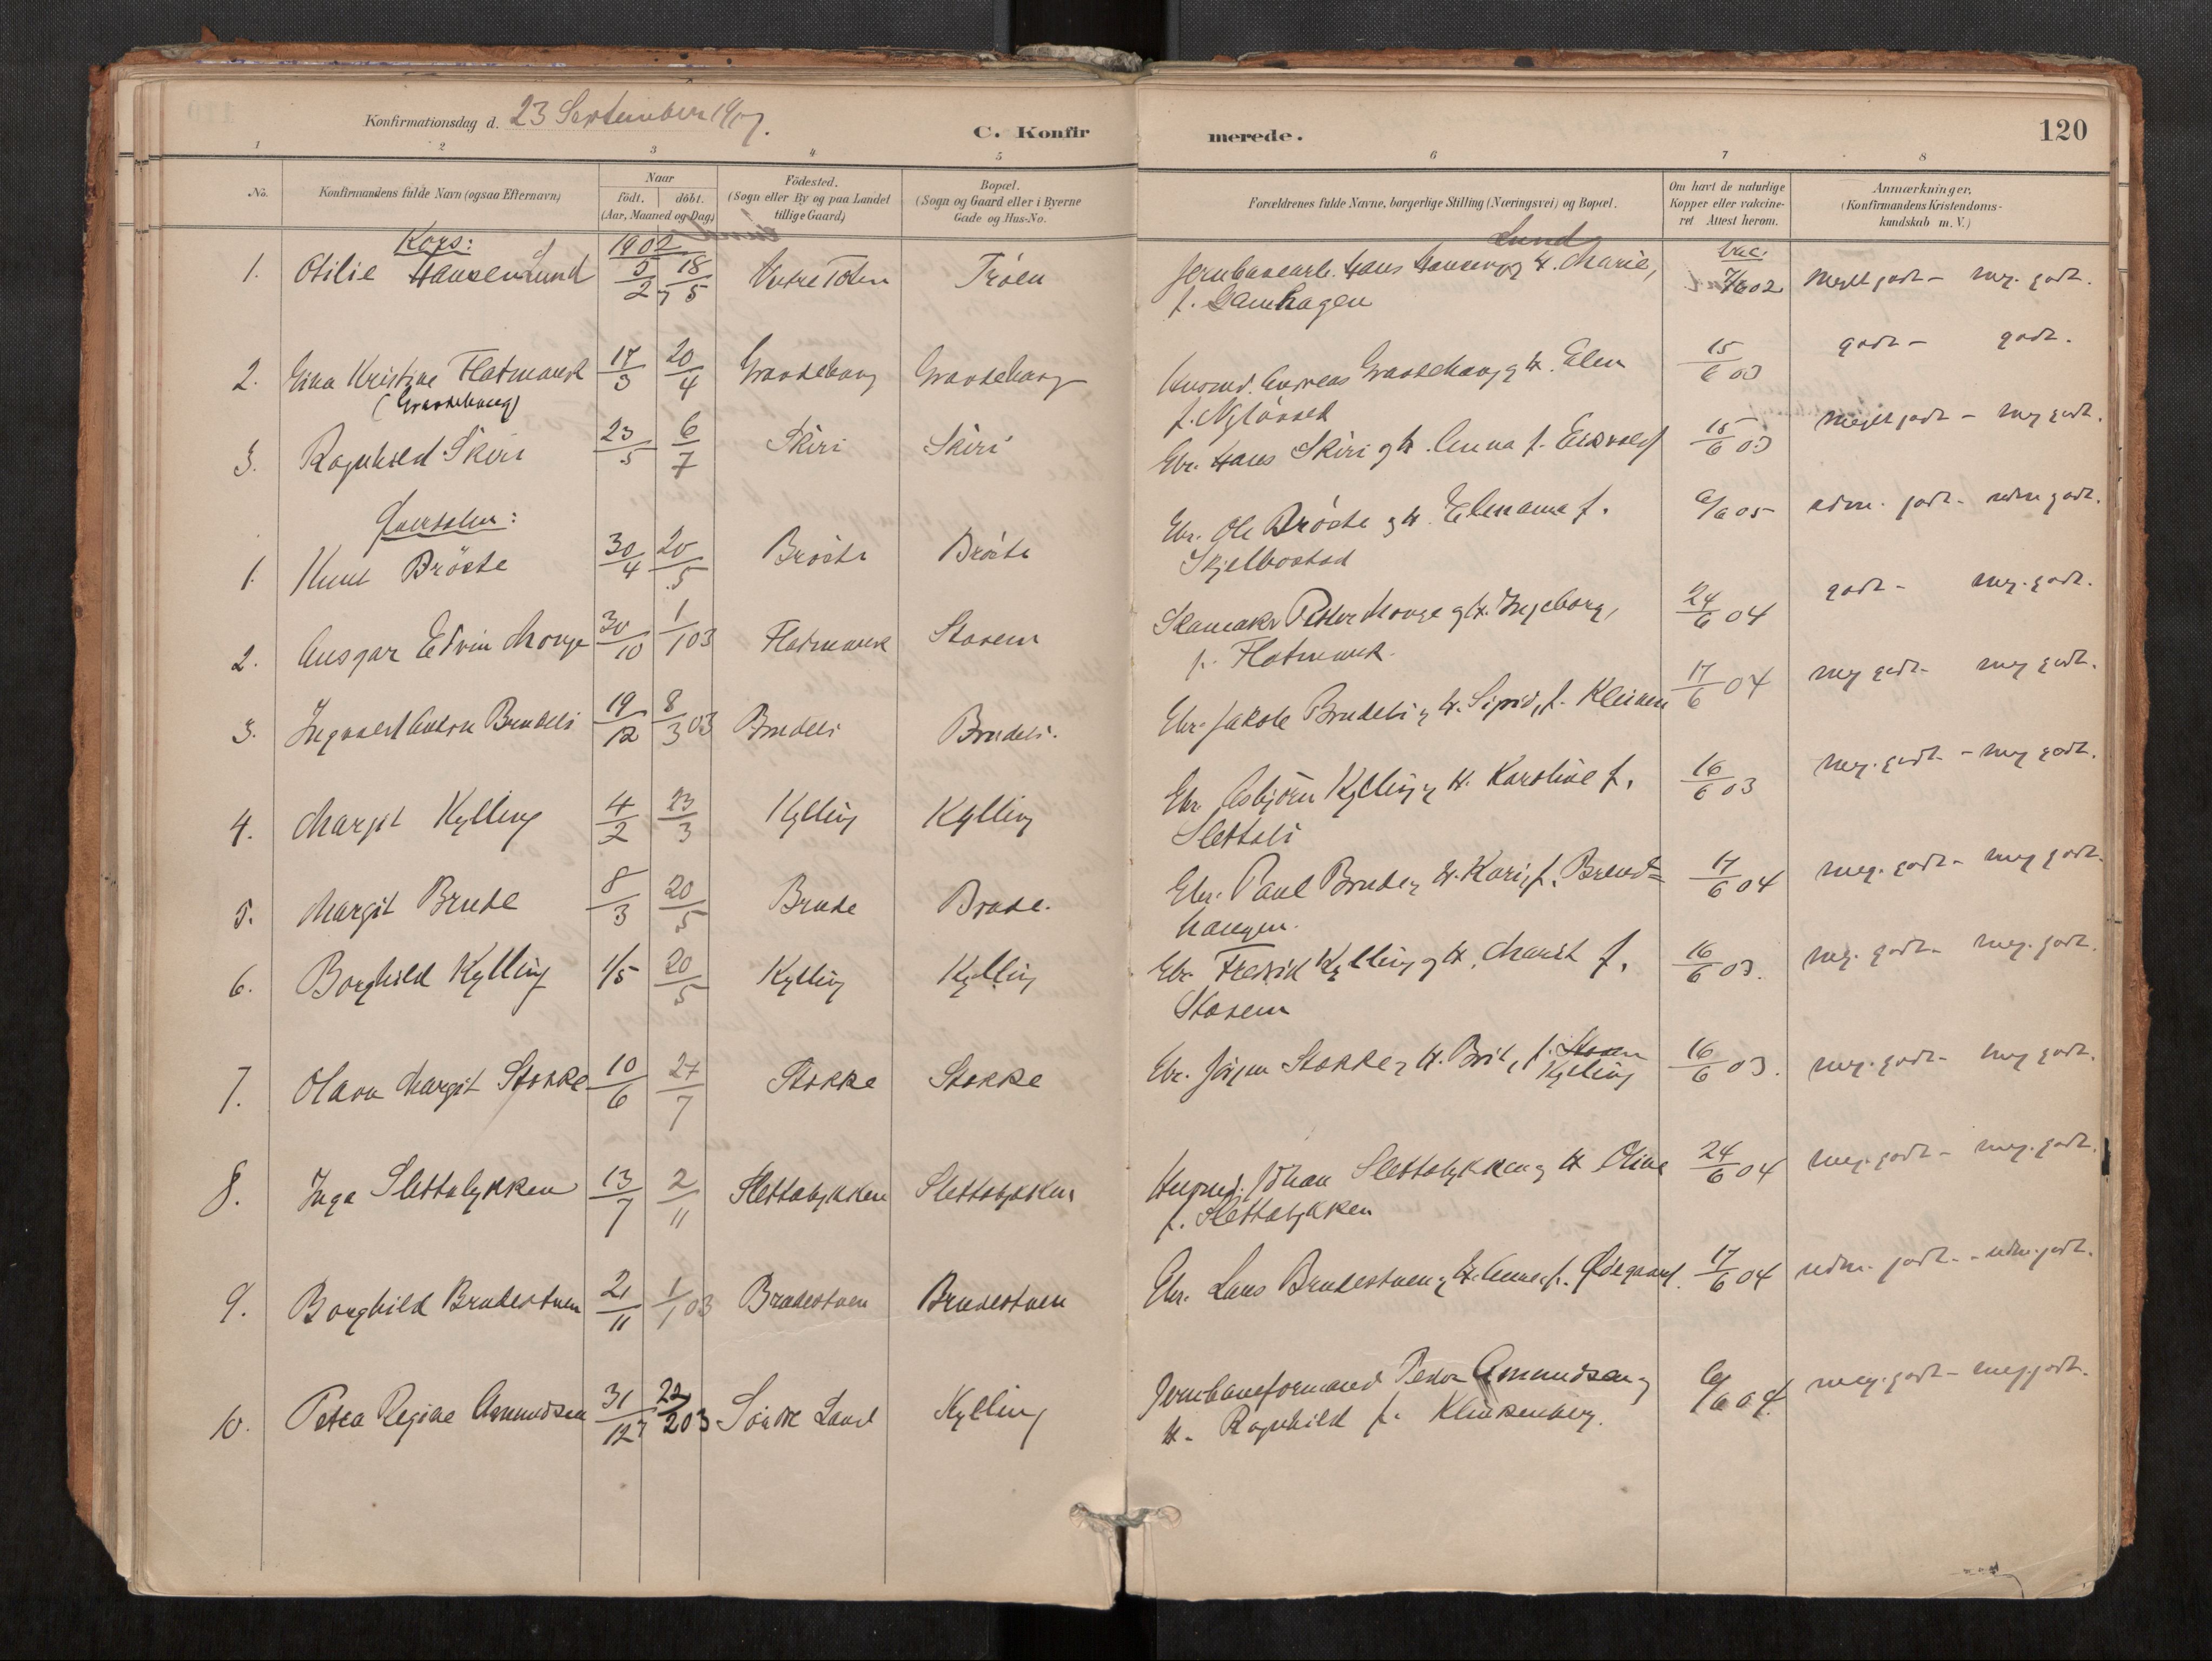 Konfirmationsdag d. 23 September 1917.
C. Konfirmerede.
120
1 2 3 4 5 6 7 8
No. Konfirmandens fulde Navn (ogsaa Efternavn) Naar födt. döbt. (Aar, Maaned og Dag) Födested. (Sogn eller By og paa Landet tillige Gaard) Bopæl. (Sogn og Gaard eller i Byerne Gade og Hus-No. Forældrenes fulde Navne, borgerlige Stilling (Næringsvei) og Bopæl. Om havt de naturlige Kopper eller vaccineret Attest herom. Anmærkninger. (Konfirmandens Kristendomskundskab m. V.)
Kors: 1902 Lund vac.
1. Otilie Hansen Lund 5/2 18/5 Vestre Toten Tröen Jernbanearb. Hans Hansen og H. Marie, 02 Meget godt - meg. godt.
f. Damhagen
2. Gina Kristine Flatmark 17/3 20/4 Gravdehaug Gravdehaug Husmd. Andreas Gravdehaug og H. Elen 15/6 03 godt - godt.
(Gravdehaug) f. Nylösset
3. Ragnhild Skiri 23/5 6/7 Skiri Skiri Ebr. Hans Skiri og H. Anna f. 15/6 03 Meget godt - meg godt.
Överdalen:
1. Knut Bröste 30/4 20/5 Bröste Bröste Ebr. Ole Bröste og H. f. 6/6 05 udm. godt - udm godt.
Skjelbostad
2. Ansgar Edvin Monge 30/10 1/1 03 Flatmark Stavem Skomaker Peter Monge og H. Ingeborg, 24/6 04 godt - meg. godt.
f. Flatmark.
3. Ingvald Anton Brudeli 19/12 8/3 03 Brudeli Brudeli. Ebr. Jakob Brudeli og H. Sigrid, f. Kleiven 17/6 04 meg godt - meg godt.
4. Margit Kylling 4/2 23/3 Kylling Kylling Ebr. Asbjörn Kylling og H. Karoline f. 16/6 03 meg. godt - meg godt.
Slettali
5. Margit Brude 8/3 20/5 Brude Brude. Ebr. Paul Brude og H. Kari, f. Brend= 17/6 04 meg. godt - meg godt.
haugen.
6. Borghild Kylling 1/5 20/5 Kylling Kylling Ebr. Fredrik Kylling og H. Marit f. 16/6 03. meg. godt - meg. godt.
Stavem
7. Olava Margit Stokke 10/6 27/7 Stokke Stokke Ebr. Jörgen Stokke og H. Brit, f. Stavem 16/6 03. meg. godt - meg godt.
Kylling
8. Inga Slettalykken 13/7 2/11 Slettalykken Slettalykken Husmd. Johan Slettalykken og H Oline 24/6 04 meg. godt - meg. godt.
f. Slettalykken
9. Borghild Brudestuen 21/11 1/1 03 Brudestuen Brudestuen Ebr. Lars Brudestuen og H. Anne, f. Ödegaard. 17/6 04 udm. godt - udm. godt.
10. Petra Regine Amundsen 31/12 22/2 03 Söndre Land Kylling Jernbaneformand Peder Amundsen og 6/6 04. meg. godt - meg godt.
H. Ragnhild f. Klinkenberg.